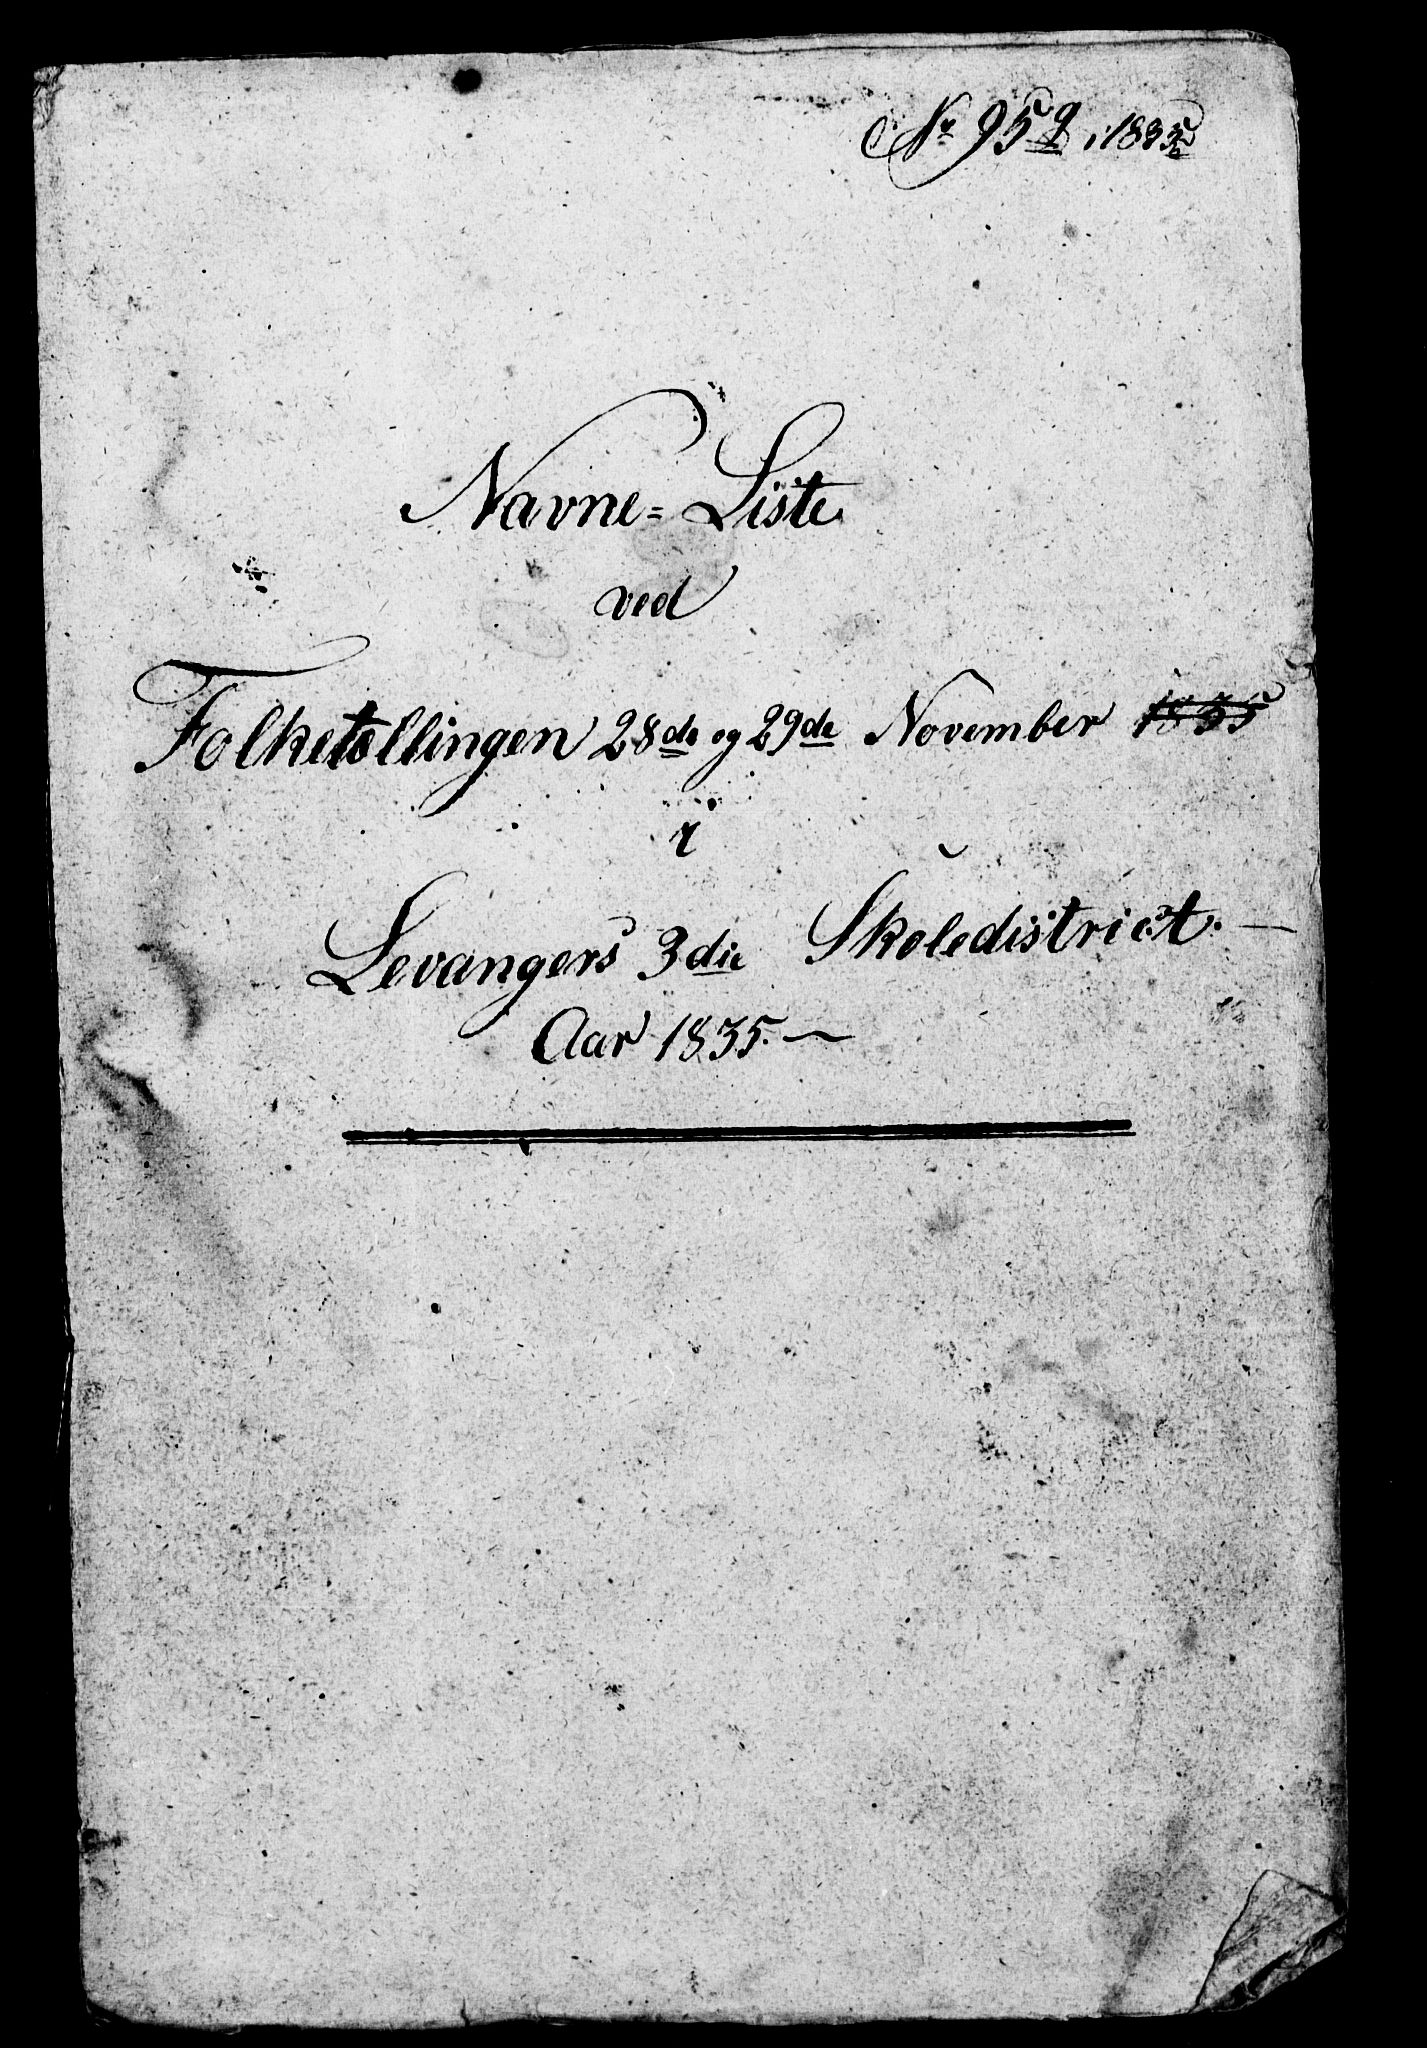 No 959, 1835
Navne=Liste
ved
Folketællingen 28de og 29de November 1835
i
Levangers 3die Skoledistrict.
Aar 1835.